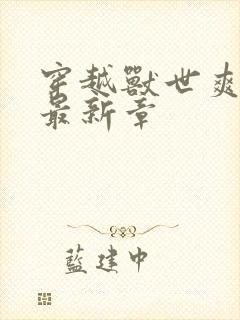 穿越獸世爽
最新章
藍建中